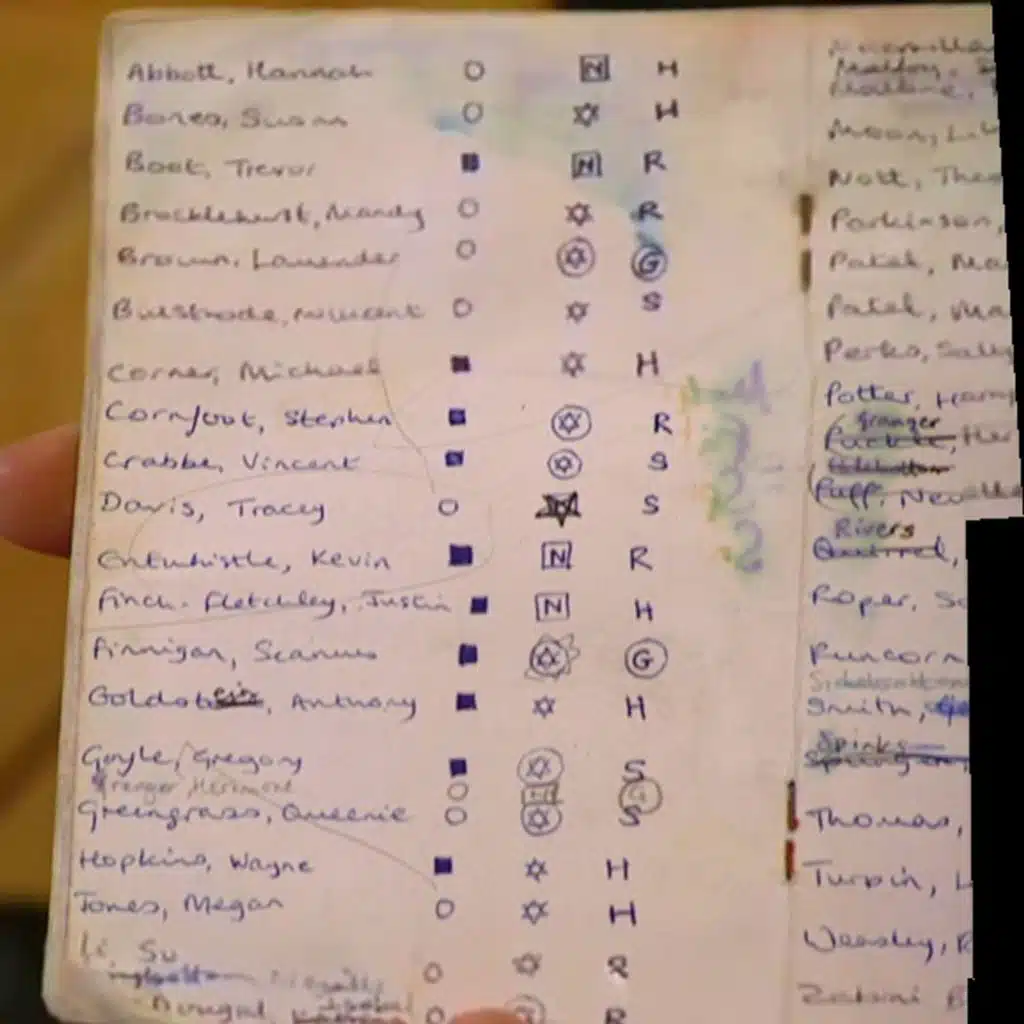 Abbott, Hannah N H
Bones, Susan H
Boot, Trevor N R
Brocklehurst, Mandy R
Brown, Lavender G
Bulstrode, Millicent S
Corner, Michael H
Cornfoot, Stephen R
Crabbe, Vincent S
Davis, Tracey S
Entwhistle, Kevin N R
Finch-Fletchley, Justin N H
Finnigan, Seamus G
Goldstein, Anthony H
Goyle, Gregory S
Granger Hermione G
Greengrass, Queenie S
Hopkins, Wayne H
Jones, Megan H
Li, Su R
R
Malfoy,
Malone,
Moon, Li
Nott, Theo
Parkinson,
Patel, Ma
Patel, Ma
Perks, Sally
Potter, Harry
Granger
Her
Puff, Neville
Rivers
Quirrel,
Roper, S
Runcorn
Smith,
Spinks
Spungen,
Thomas,
Turpin, L
Weasley, R
Zabini B